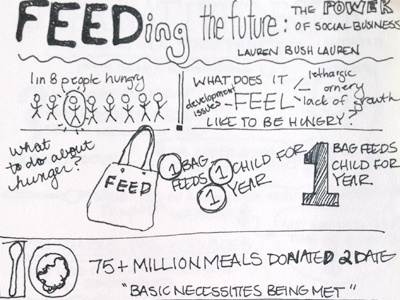 FEEDing the future: THE POWER
OF SOCIAL BUSINESS
LAUREN BUSH LAUREN
1 in 8 people hungry
WHAT DOES IT
development issues
FEEL
lethargic
ornery
lack of growth
LIKE TO BE HUNGRY?
what
to do about
hunger?
FEED
1 BAG
FEEDS 1 CHILD FOR
1 YEAR
1 BAG FEEDS
CHILD FOR
YEAR
75+ MILLION MEALS DONATED 2 DATE
"BASIC NECESSITIES BEING MET"